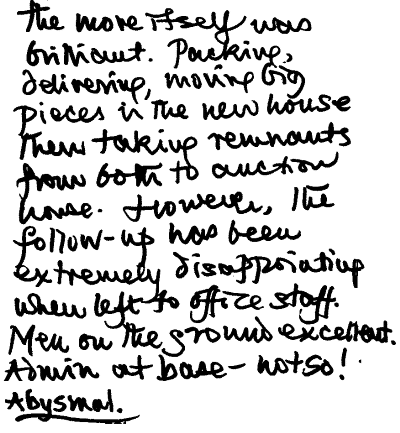 The move itself was
brilliant. Packing,
delivering, moving big
pieces in the new house
then taking remnants
from both to auction
house. However, the
follow-up has been
extremely disappointing
when left to office staff.
Men on the ground excellent.
Admin at base - not so!
Abysmal.